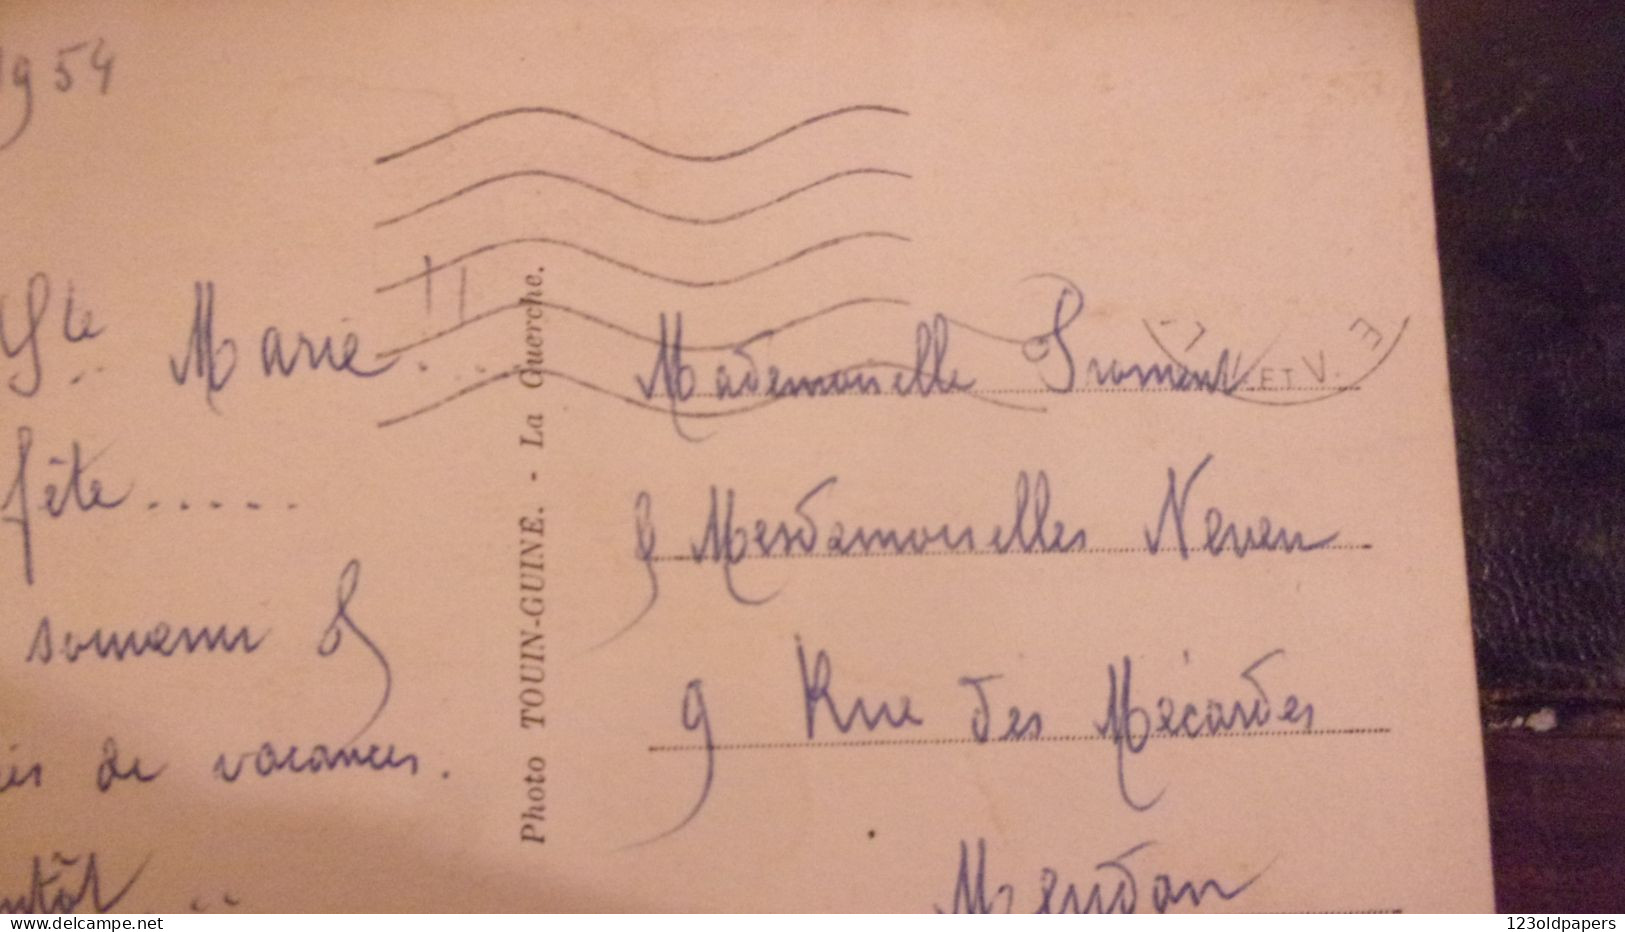 1954
Ste Marie...
fête.....
souvenir &
de vacances.
ntôt ...
Photo TOUIN-GUINE. - La Guerche.
ET V.
Mademoiselle Froment
& Mesdemoiselles Neveu
9 Rue des Mécardes
Meudon
123oldpapers